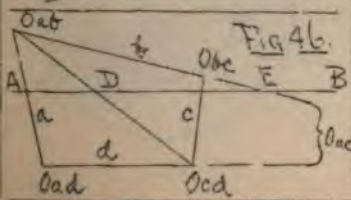 Oab
b
Fig 46.
Obc
A
D
E
B
a
c
Oac
d
Oad
Ocd